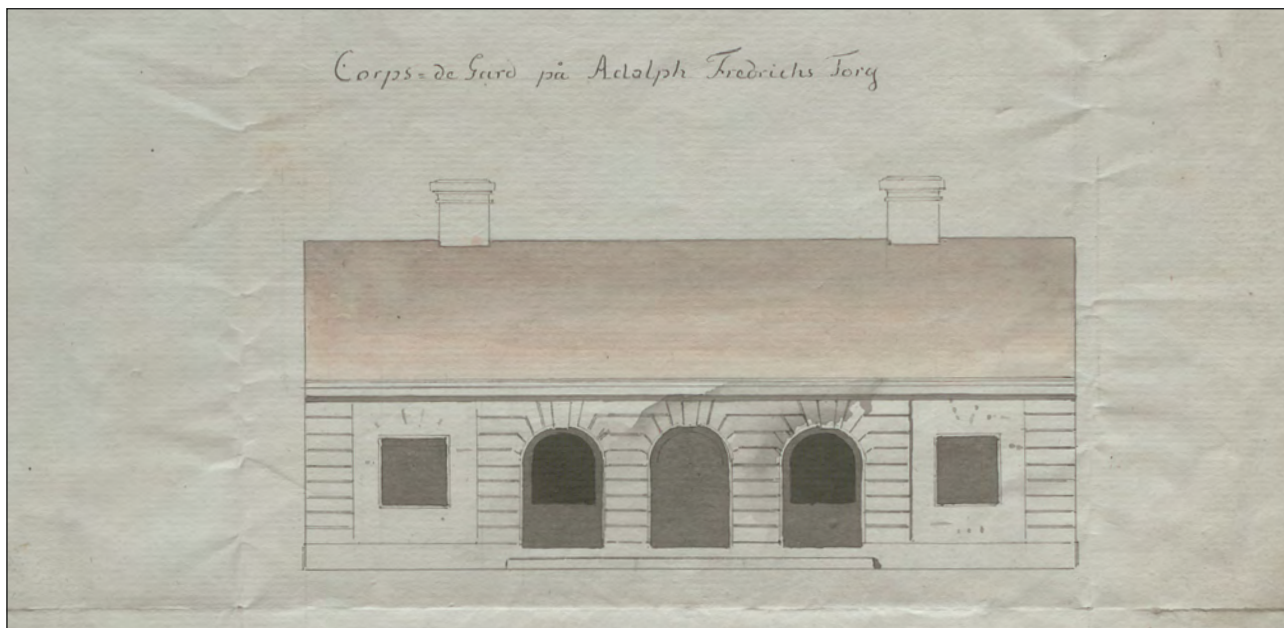 Corps=de Gard på Adolph Fredrichs Torg